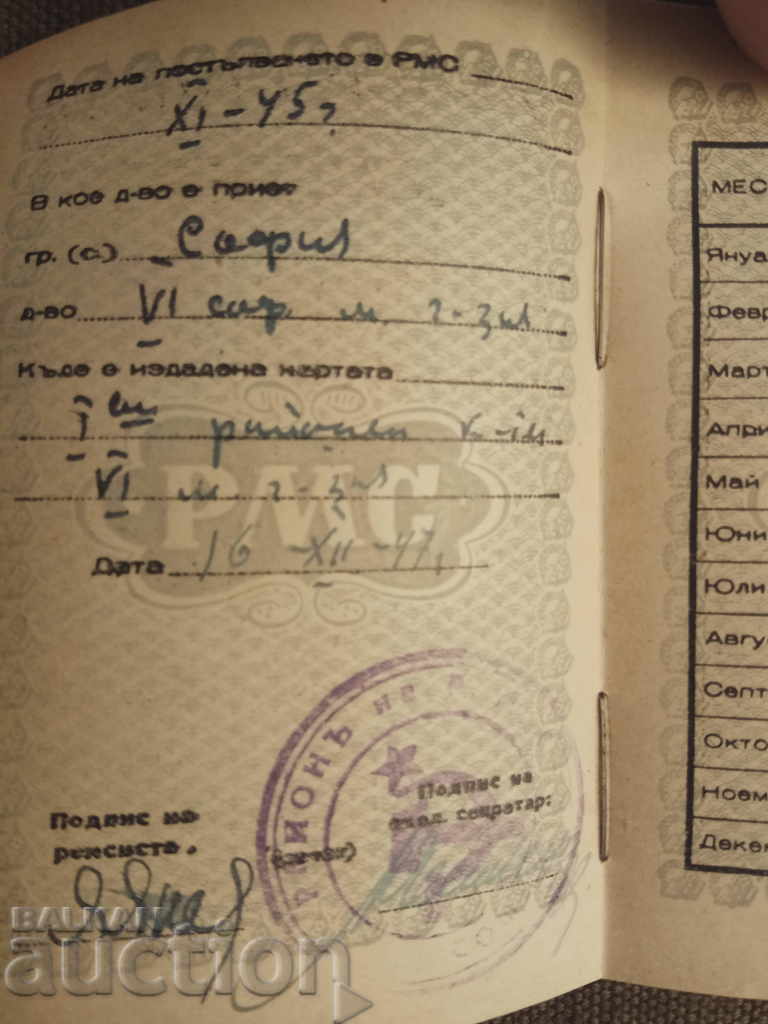 Дата на постъпването в РМС
XI - 45 г.
В кое д-во е приет
гр. (с.) София
д-во VI соф. м. г-зия
Къде е издадена картата
I районен к-т
VI м. г-зия
РМС
Дата 16 - XII - 47.
РАЙОНЪ
Подпис на
ремсиста.
(печат)
Подпис на
окол. секретар:
BALKAN
auction
МЕС
Януа
Февр
Март
Апри
Май
Юни
Юли
Авгус
Септ
Окто
Ноем
Декем